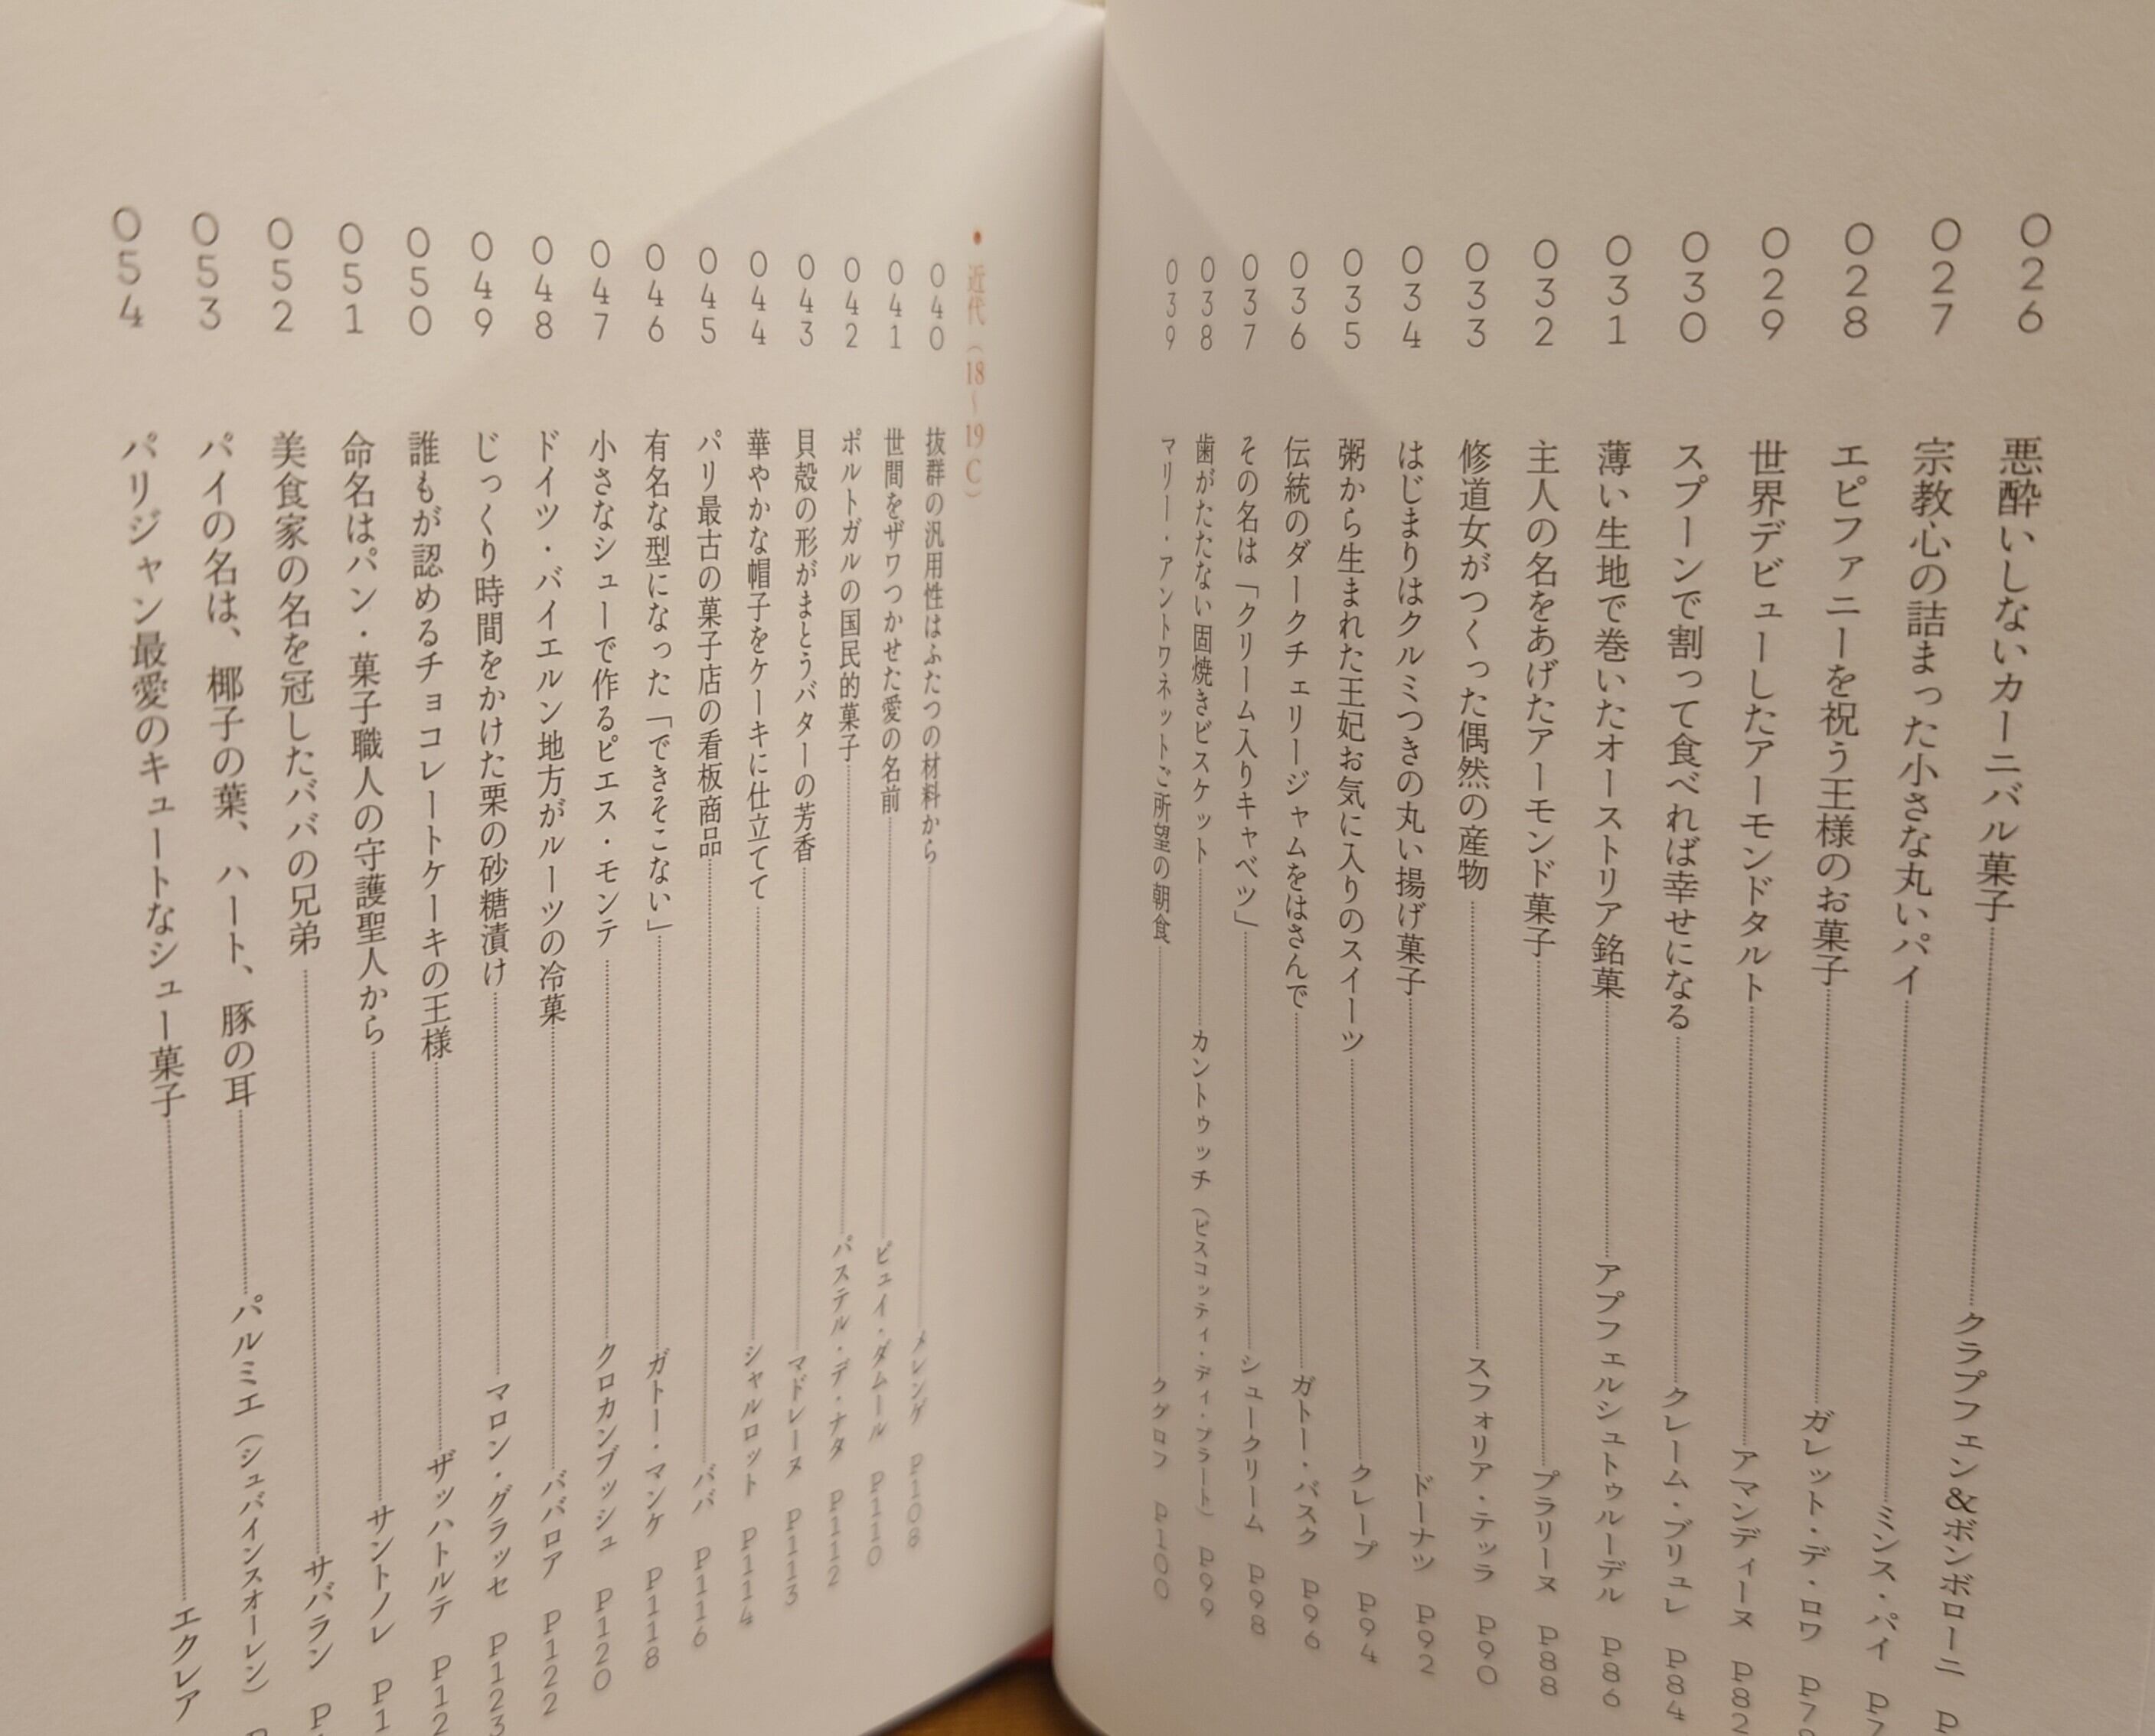 026 悪酔いしないカーニバル菓子 クラプフェン&ボンボローニ
027 宗教心の詰まった小さな丸いパイ ミンス・パイ
028 エピファニーを祝う王様のお菓子 ガレット・デ・ロワ
029 世界デビューしたアーモンドタルト アマンディーヌ P82
030 スプーンで割って食べれば幸せになる クレーム・ブリュレ P84
031 薄い生地で巻いたオーストリア銘菓 アプフェルシュトゥルーデル P86
032 主人の名をあげたアーモンド菓子 プラリーヌ P88
033 修道女がつくった偶然の産物 スフォリア・テッラ P90
034 はじまりはクルミつきの丸い揚げ菓子 ドーナツ P92
035 粥から生まれた王妃お気に入りのスイーツ クレープ P94
036 伝統のダークチェリージャムをはさんで ガトー・バスク P96
037 その名は「クリーム入りキャベツ」 シュークリーム P98
038 歯がたたない固焼きビスケット カントゥッチ（ビスコッティ・ディ・プラート） P99
039 マリー・アントワネットご所望の朝食 クグロフ P100
• 近代（18〜19C）
040 抜群の汎用性はふたつの材料から メレンゲ P108
041 世間をザワつかせた愛の名前 ピュイ・ダムール P110
042 ポルトガルの国民的菓子 パステル・デ・ナタ P112
043 貝殻の形がまとうバターの芳香 マドレーヌ P113
044 華やかな帽子をケーキに仕立てて シャルロット P114
045 パリ最古の菓子店の看板商品 ババ P116
046 有名な型になった「できそこない」 ガトー・マンケ P118
047 小さなシューで作るピエス・モンテ クロカンブッシュ P120
048 ドイツ・バイエルン地方がルーツの冷菓 ババロア P122
049 じっくり時間をかけた栗の砂糖漬け マロン・グラッセ P123
050 誰もが認めるチョコレートケーキの王様 ザッハトルテ
051 命名はパン・菓子職人の守護聖人から サントノレ
052 美食家の名を冠したババの兄弟 サバラン
053 パイの名は、椰子の葉、ハート、豚の耳 パルミエ（シュバインスオーレン）
054 パリジャン最愛のキュートなシュー菓子 エクレア